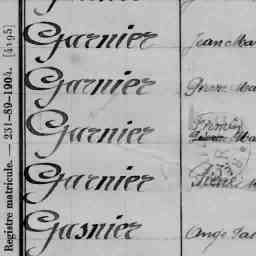 Registre matricule. — 231-89-1904. [4195]
Garnier Jean Ma
Garnier Pierre Ma
Garnier
Garnier Pierre
Gasnier Ange